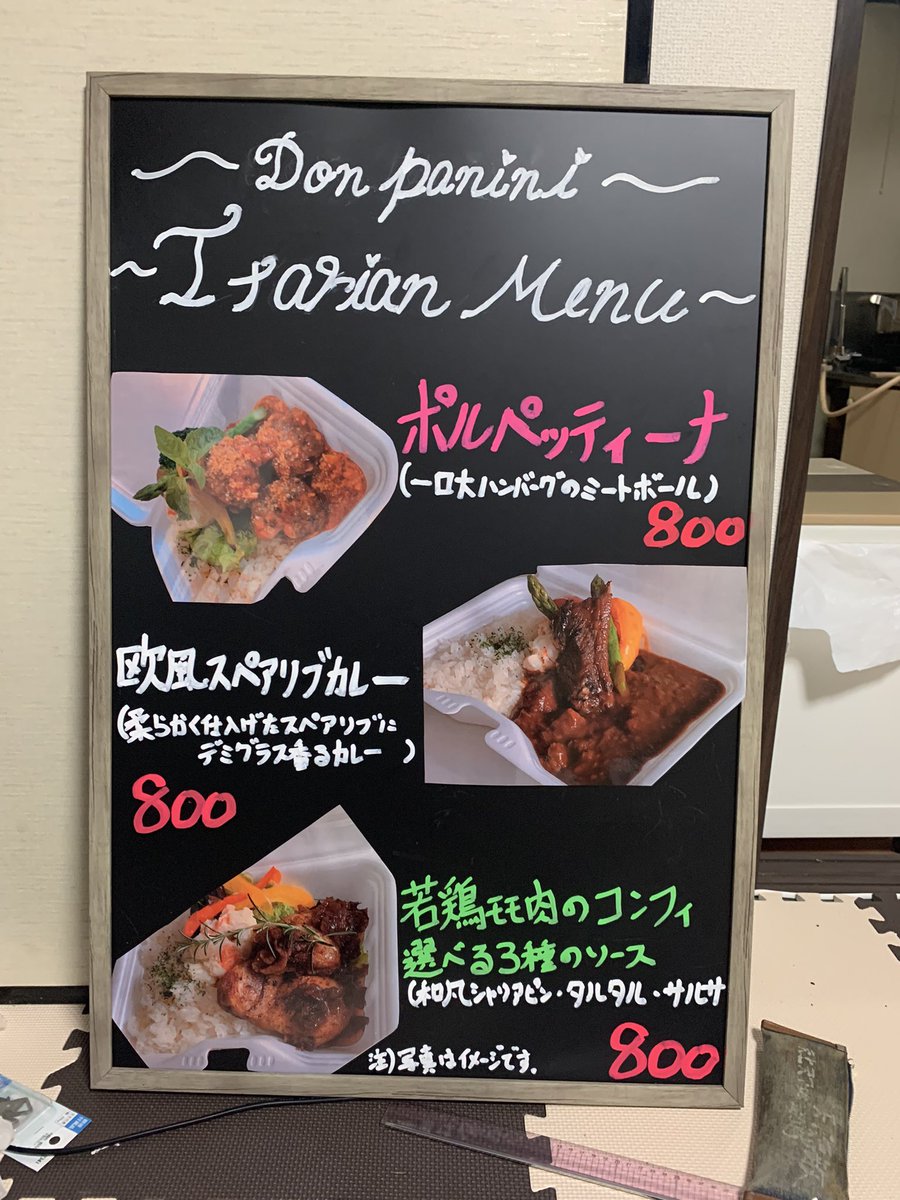 ~ Don panini ~
~ Itarian Menu ~
ポルペッティーナ
(一口大ハンバーグのミートボール)
800
欧風スペアリブカレー
(柔らかく仕上げたスペアリブに
デミグラス香るカレー)
800
若鶏モモ肉のコンフィ
選べる3種のソース
(和風シャリアピン・タルタル・サルサ
800
注)写真はイメージです.